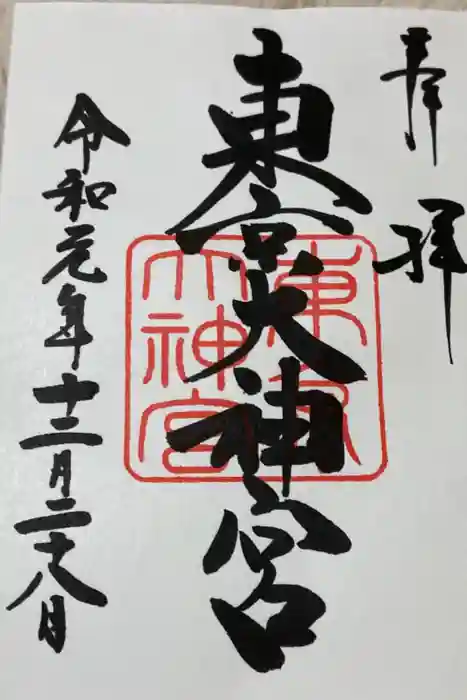 奉拝
東京大神宮
令和元年十二月二十八日
東京
大神宮